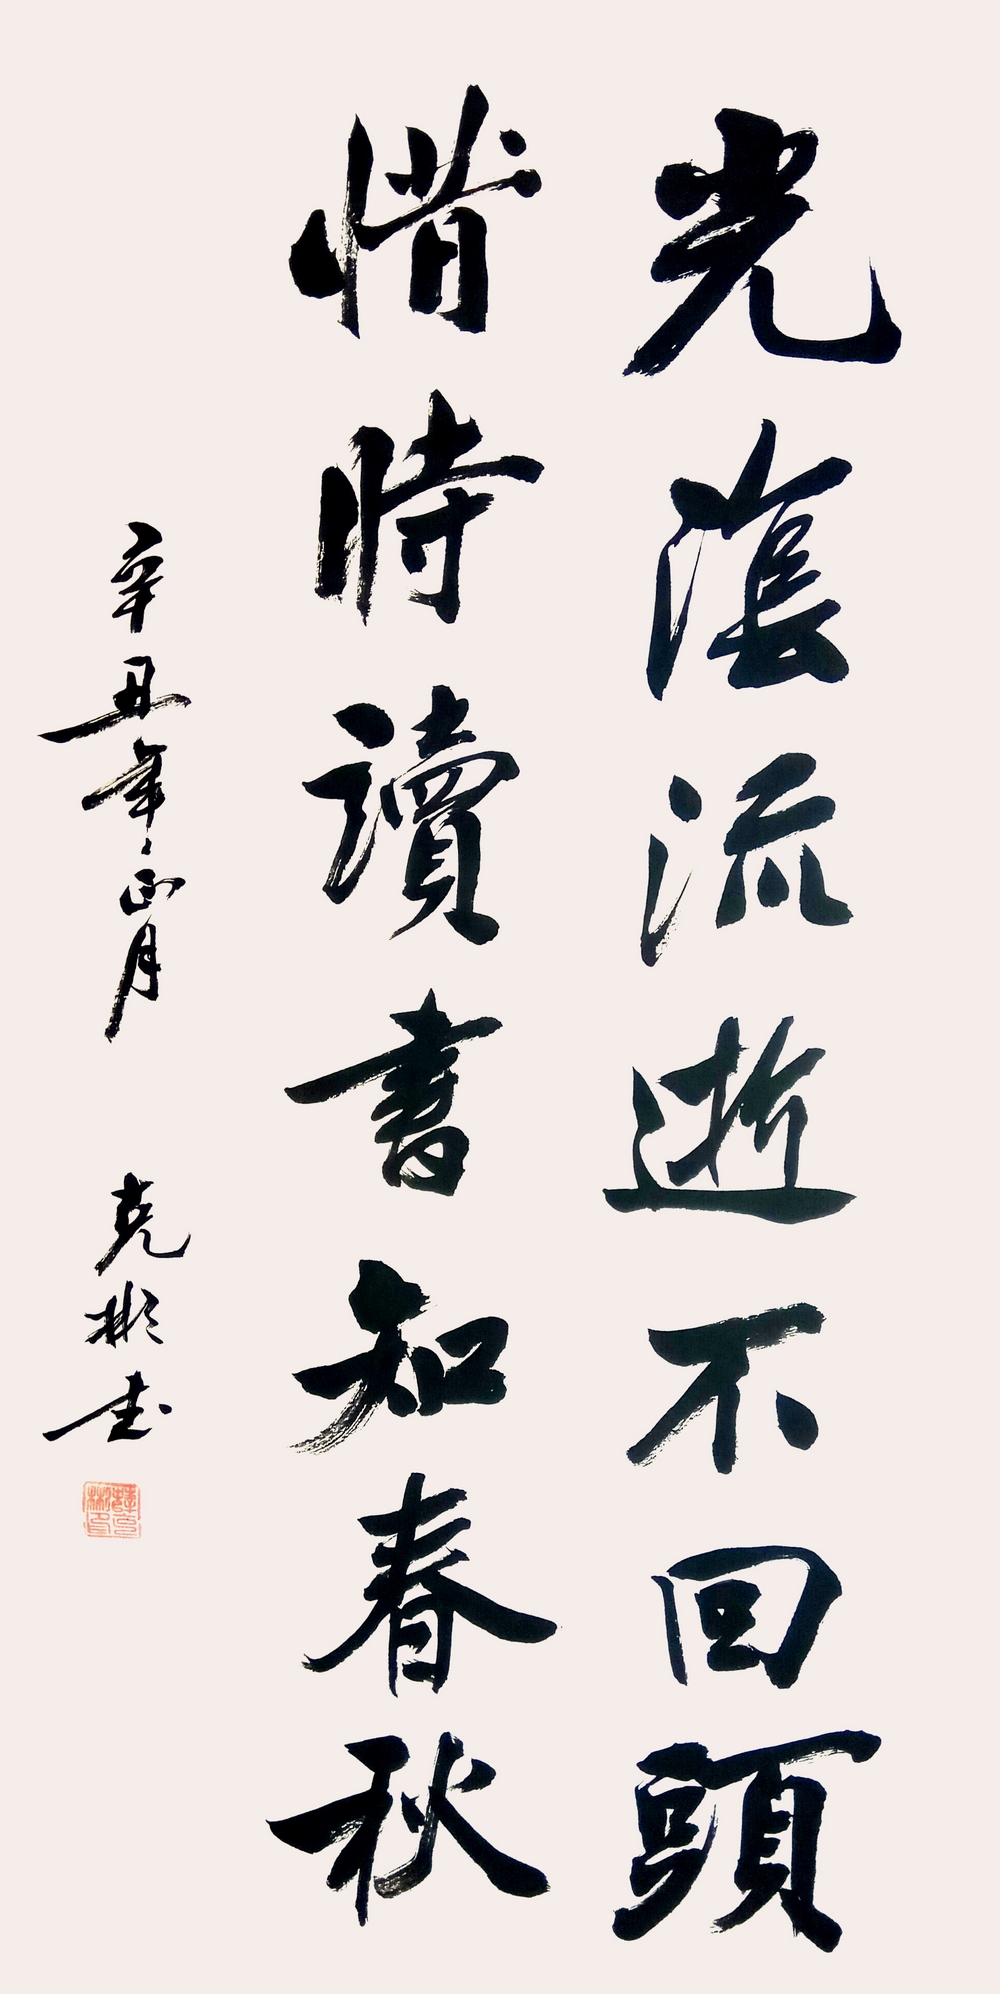 光蔭流逝不回頭
惜時讀書知春秋
辛丑年正月 克彬书